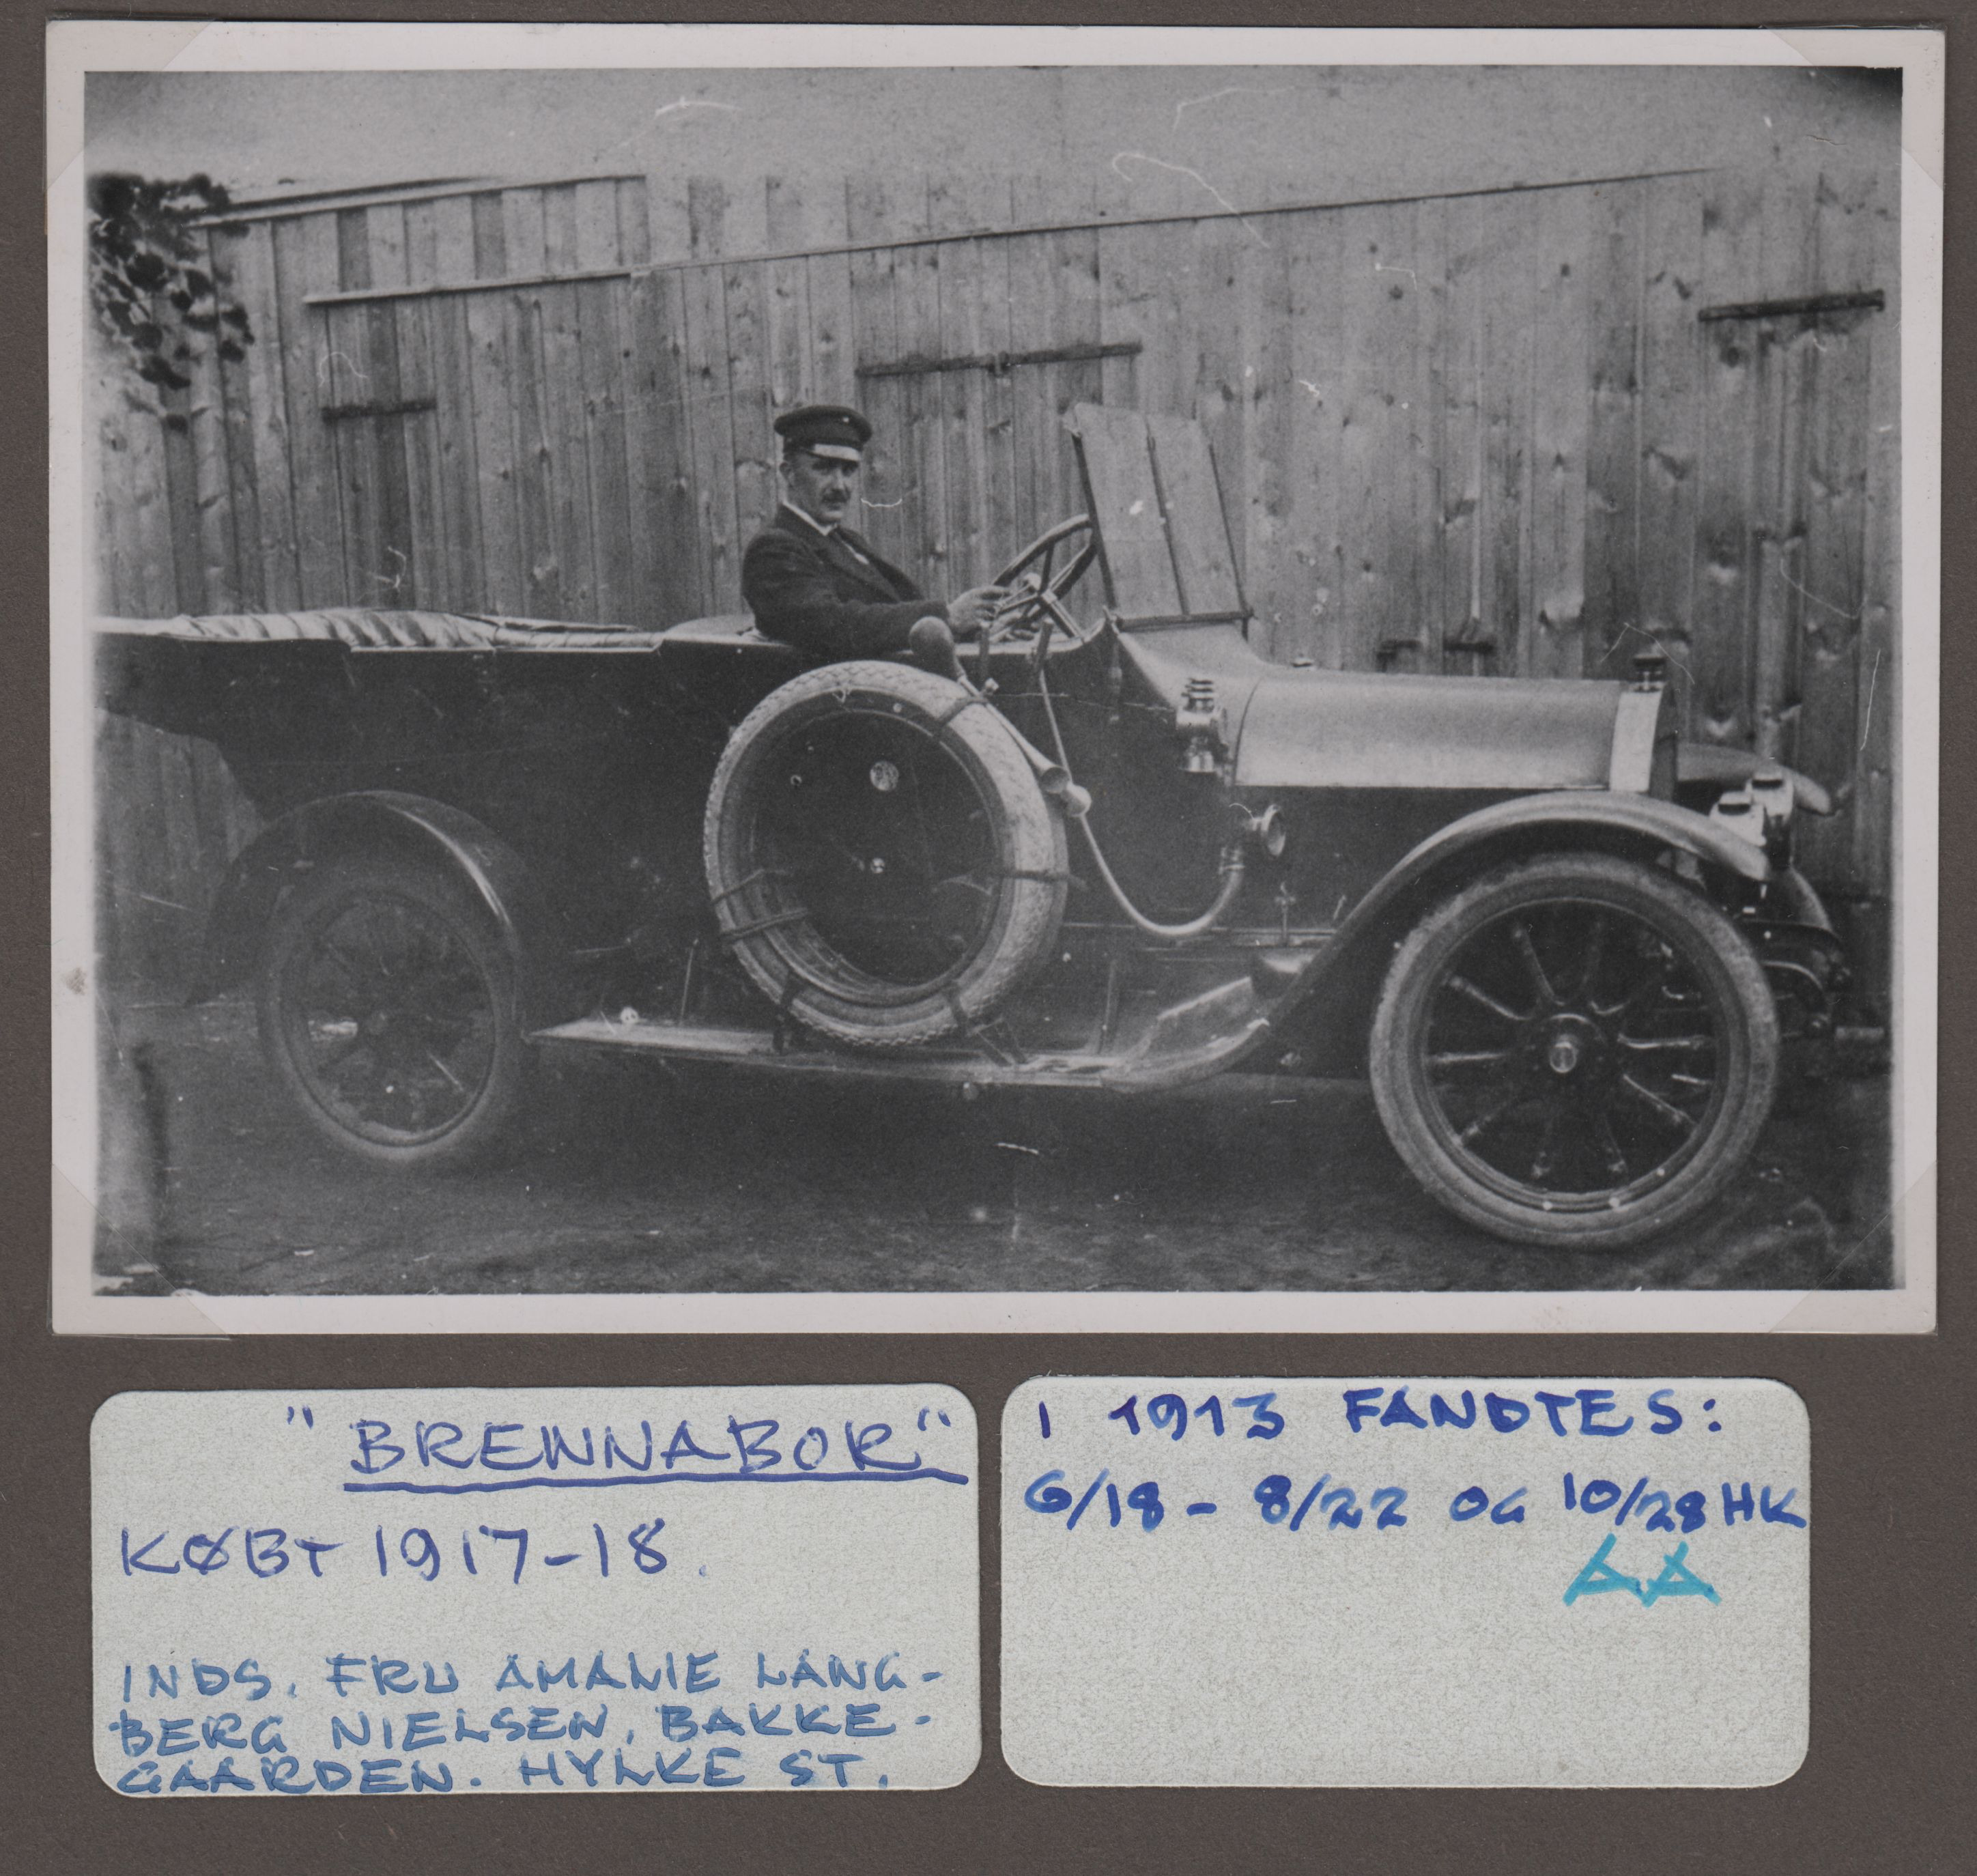 "BRENNABOR"
KØBT 1917-18.
INDS. FRU AMALIE LANG-
BERG NIELSEN, BAKKE-
GAARDEN. HYLKE ST.
I 1913 FANDTES:
6/18 - 8/22 OG 10/28 HK
AA